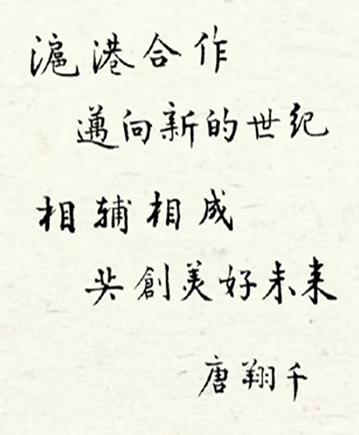 滬港合作
邁向新的世纪
相辅相成
共創美好未来
唐翔千